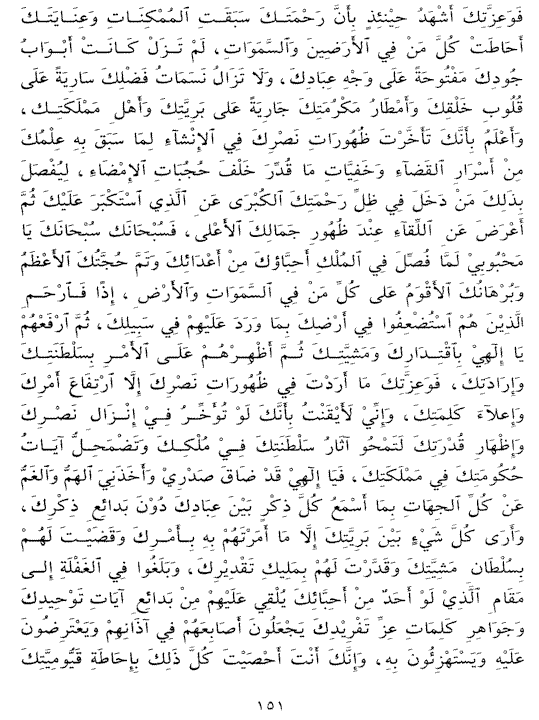 فَوَعِزَّتِكَ أَشْهَدُ حِيْنَئِذٍ بِأَنَّ رَحْمَتَـكَ سَبَقَتِ ٱلْمُمْكِنَاتِ وَعِنَايَتَـكَ
أَحَاطَتْ كُلَّ مَنْ فِي ٱلأَرَضِينَ وَٱلسَّمَوَاتِ، لَمْ تَزَلْ كَانَتْ أَبْوَابُ
جُودِكَ مَفْتُوحَةً عَلَى وَجْهِ عِبَادِكَ، وَلَا تَزَالُ نَسَمَاتُ فَضْلِكَ سَارِيَةً عَلَى
قُلُوبِ خَلْقِكَ وَأَمْطَارُ مَكْرُمَتِكَ جَارِيَةً عَلَى بَرِيَّتِكَ وَأَهْلِ مَمْلَكَتِـكَ،
وَأَعْلَمُ بِأَنَّكَ تَأَخَّرْتَ ظُهُورَاتِ نَصْرِكَ فِي ٱلإِنْشَآءِ لِمَا سَبَقَ بِهِ عِلْمُكَ
مِنْ أَسْرَارِ ٱلقَضَآءِ وَخَفِيَّاتِ مَا قُدِّرَ خَلْفَ حُجُبَاتِ ٱلإِمْضَاءِ، لِيُفْصَلَ
بِذَلِكَ مَنْ دَخَلَ فِي ظِلِّ رَحْمَتِكَ ٱلكُبْرَى عَنِ ٱلَّذِي ٱسْتَكْبَرَ عَلَيْكَ ثُمَّ
أَعْرَضَ عَنِ ٱللِّقَآءِ عِنْدَ ظُهُورِ جَمَالِكَ ٱلأَعْلَى، فَسُبْحَانَكَ سُبْحَانَكَ يَا
مَحْبُوبِيْ لَمَّا فُصِّلَ فِي ٱلمُلْكِ أَحِبَّاؤُكَ مِنْ أَعْدَائِكَ وَتَمَّ حُجَّتُكَ ٱلأَعْظَمُ
وَبُرْهَانُكَ ٱلأَقْوَمُ عَلَى كُلِّ مَنْ فِي ٱلسَّمَوَاتِ وَٱلأَرْضِ، إِذًا فَـٱرْحَـمِ
ٱلَّذِيْنَ هُمْ ٱسْتُضْعِفُوا فِي أَرْضِكَ بِمَا وَرَدَ عَلَيْهِمْ فِي سَبِيلِكَ، ثُمَّ ٱرْفَعْهُمْ
يَا إِلَهِيْ بِٱقْتِـدَارِكَ وَمَشِيَّتِـكَ ثُـمَّ أَظْهِـرْهُـمْ عَلَـى ٱلأَمْـرِ بِسَلْطَنَتِـكَ
وَإِرَادَتِكَ، فَوَعِزَّتِكَ مَا أَرَدْتَ فِي ظُهُورَاتِ نَصْرِكَ إِلَّا ٱرْتِفَاعَ أَمْرِكَ
وَإِعْلاَءَ كَلِمَتِكَ، وَإِنِّيْ لَأَيْقَنْتُ بِأَنَّكَ لَوْ تُؤَخِّـرُ فِـيْ إِنْـزَالِ نَصْـرِكَ
وَإِظْهَارِ قُدْرَتِكَ لَتَمْحُو آثَارُ سَلْطَنَتِكَ فِـيْ مُلْكِـكَ وَتَضْمَحِـلُّ آيَـاتُ
حُكُومَتِكَ فِي مَمْلَكَتِكَ، فَيَا إِلَهِيْ قَدْ ضَاقَ صَدْرِيْ وَأَخَذَنِيَ ٱلهَمُّ وَٱلغَمُّ
عَنْ كُلِّ ٱلجِهَاتِ بِمَا أَسْمَعُ كُلَّ ذِكْرٍ بَيْنَ عِبَادِكَ دُوْنَ بَدَائِعِ ذِكْرِكَ،
وَأَرَى كُلَّ شَيْءٍ بَيْنَ بَرِيَّتِكَ إِلَّا مَا أَمَرْتَهُمْ بِهِ بِـأَمْـرِكَ وَقَضَيْـتَ لَهُـمْ
بِسُلْطَانِ مَشِيَّتِكَ وَقَدَّرْتَ لَهُمْ بِمَلِيكِ تَقْدِيْرِكَ، وَبَلَغُوا فِي ٱلغَفْلَةِ إِلـى
مَقَامِ ٱلَّذِيْ لَوْ أَحَدٌ مِنْ أَحِبَّائِكَ يُلْقِي عَلَيْهِمْ مِنْ بَدَائِعِ آيَاتِ تَوْحِيدِكَ
وَجَوَاهِرِ كَلِمَاتِ عِزِّ تَفْرِيْدِكَ يَجْعَلُونَ أَصَابِعَهُمْ فِي آذَانِهِمْ وَيَعْتَرِضُونَ
عَلَيْهِ وَيَسْتَهْزِئُونَ بِهِ، وَإِنَّكَ أَنْتَ أَحْصَيْتَ كُلَّ ذَلِكَ بِإِحَاطَةِ قَيُّومِيَّتِكَ
١٥١